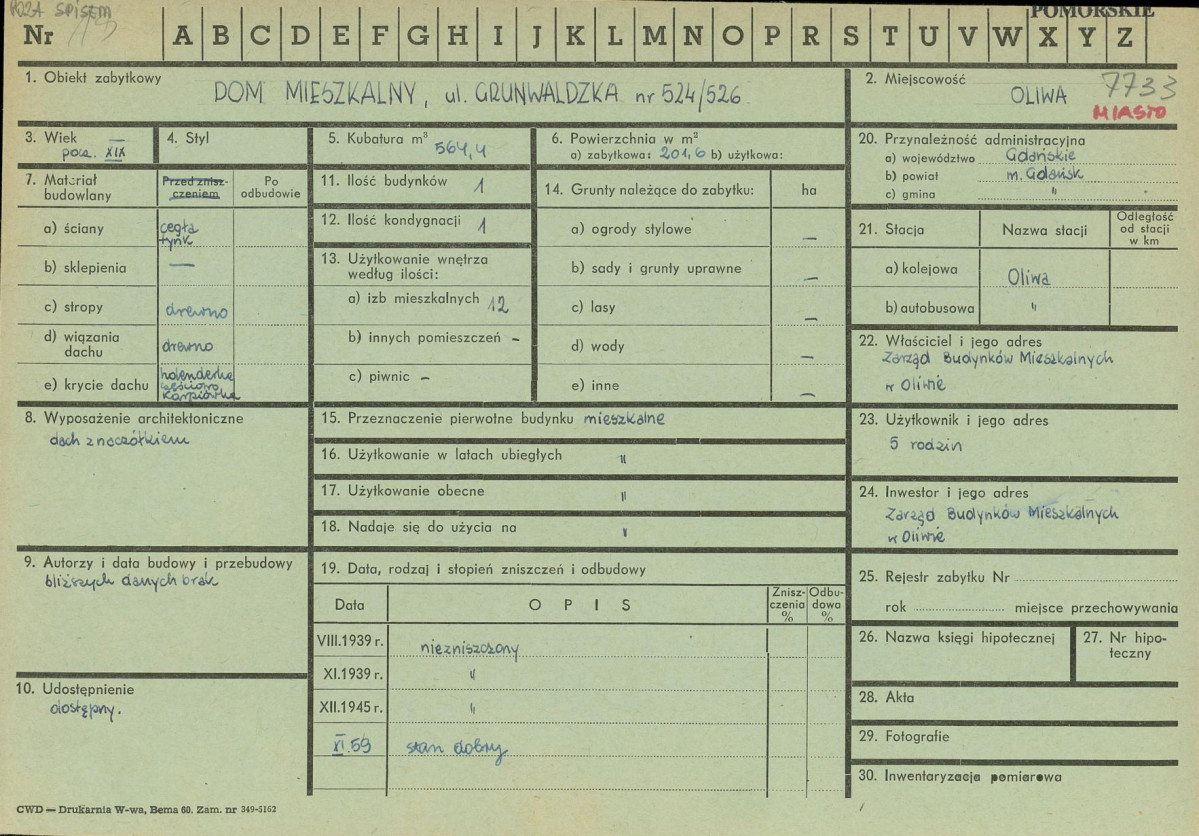 POZA SPISEM
POMORSKIE
Nr A B C D E F G H I J K L M N O P R S T U V W X Y Z
1. Obiekt zabytkowy
DOM MIESZKALNY, ul. GRUNWALDZKA nr 524/526
2. Miejscowość 7733
OLIWA MIASTO
3. Wiek
pocz. XIX
4. Styl
5. Kubatura m³ 564,4
6. Powierzchnia w m²
a) zabytkowa: 201,6 b) użytkowa:
7. Materiał budowlany
Przed zniszczeniem
Po odbudowie
a) ściany cegła tynk
b) sklepienia —
c) stropy drewno
d) wiązania dachu drewno
e) krycie dachu holenderka częściowo karpiówka
11. Ilość budynków 1
12. Ilość kondygnacji 1
13. Użytkowanie wnętrza
według ilości:
a) izb mieszkalnych 12
b) innych pomieszczeń –
c) piwnic –
14. Grunty należące do zabytku: ha
a) ogrody stylowe –
b) sady i grunty uprawne –
c) lasy –
d) wody –
e) inne –
20. Przynależność administracyjna
a) województwo Gdańskie
b) powiat m. Gdańsk
c) gmina "
21. Stacja Nazwa stacji Odległość od stacji w km
a) kolejowa Oliwa
b) autobusowa "
22. Właściciel i jego adres
Zarząd Budynków Mieszkalnych
w Oliwie
8. Wyposażenie architektoniczne
dach z naczółkiem
15. Przeznaczenie pierwotne budynku mieszkalne
16. Użytkowanie w latach ubiegłych "
17. Użytkowanie obecne "
18. Nadaje się do użycia na "
23. Użytkownik i jego adres
5 rodzin
24. Inwestor i jego adres
Zarząd Budynków Mieszkalnych
w Oliwie
9. Autorzy i data budowy i przebudowy
bliższych danych brak
10. Udostępnienie
dostępny.
19. Data, rodzaj i stopień zniszczeń i odbudowy
Data OPIS Zniszczenia % Odbudowa %
VIII.1939 r. niezniszczony
XI.1939 r. "
XII.1945 r. "
XI.59 stan dobry
25. Rejestr zabytku Nr
rok miejsce przechowywania
26. Nazwa księgi hipotecznej
27. Nr hipoteczny
28. Akta
29. Fotografie
30. Inwentaryzacja pomiarowa
CWD — Drukarnia W-wa, Bema 60. Zam. nr 349-5162